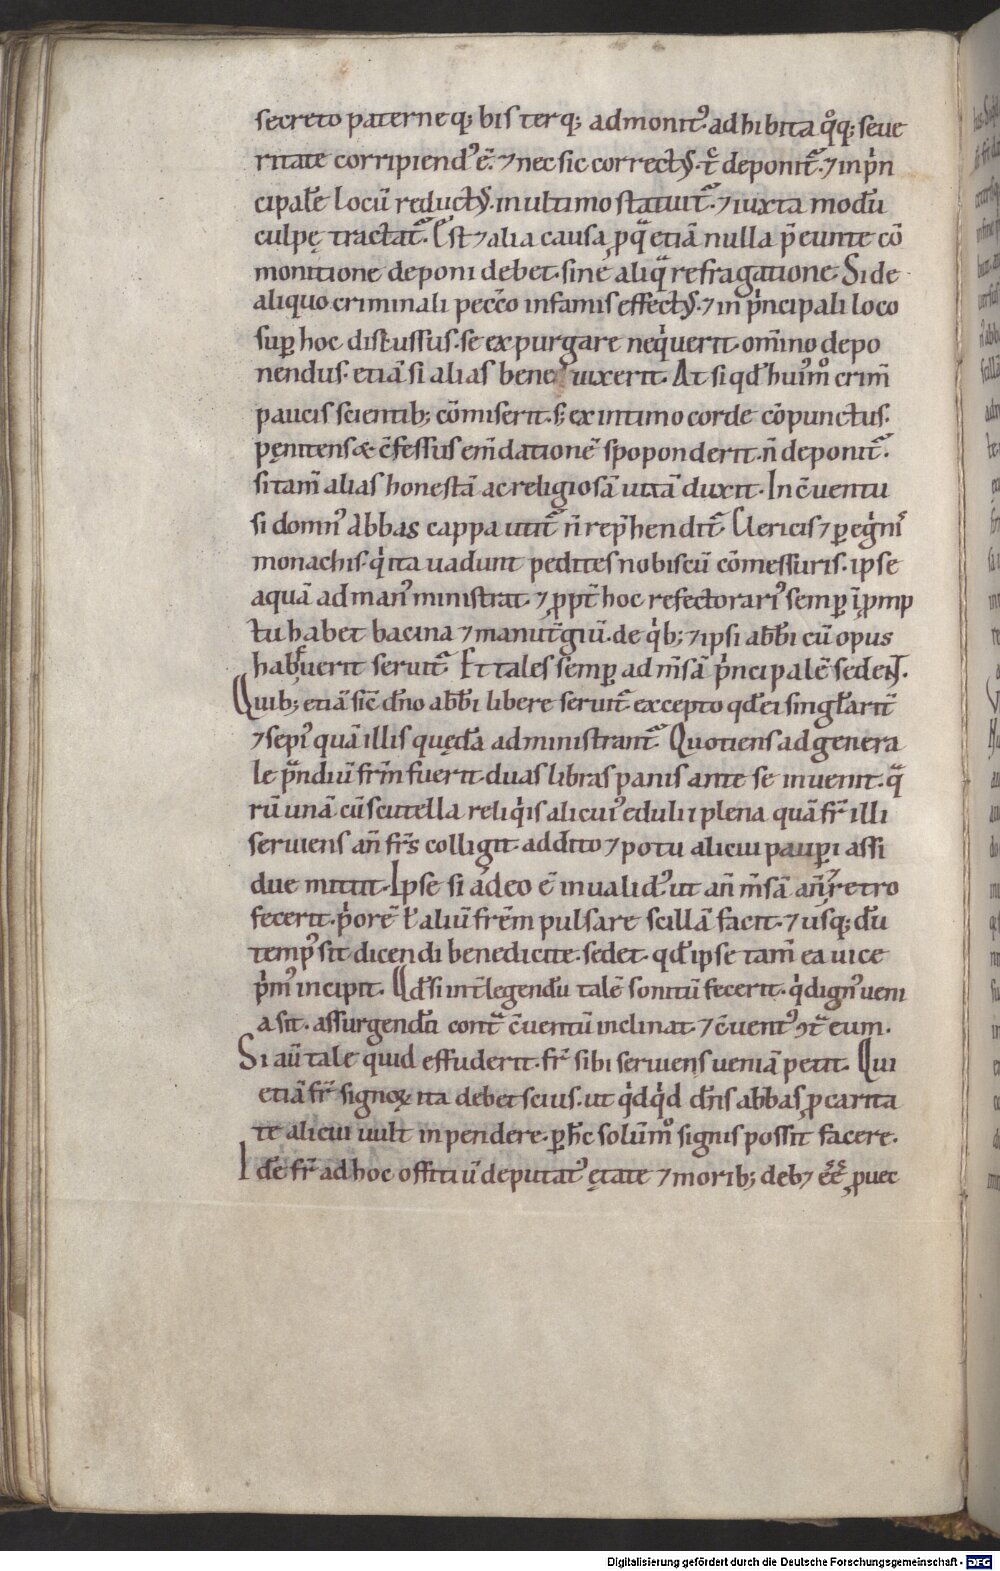 secreto paterneq; bis terq; admonit᷒. adhibita qͦq; seue
ritate corripiend᷒ ē. ⁊ nec sic correct᷒. t̄c deponit᷑. ⁊ in pⁱn
cipalē locū reduct᷒. in ultimo statuit᷑. ⁊ iuxta modū
culpę tractat᷑. Est ⁊ alia causa ꝓ qᵃ etiā nulla p̄eunte cō
monitione deponi debet. sine aliqᵃ refragatione. Si de
aliquo criminali pecc̄o infamis effect᷒. ⁊ in pⁱncipali loco
suꝑ hoc discussus. se expurgare neqⁱuerit. om̄ino depo
nendus. etiā si alias bene uixerit. At si qđ hui᷒mͦ crim̄
paucis scientib; cōmiserit. s; ex intimo corde cōpunctus.
pęnitens & c̄fessus em̄dationē spoponderit. n̄ deponit᷑.
si tam̄ alias honestā ac religiosā uitā duxit. In c̄uentu
si domn᷒ abbas cappa utit᷑ n̄ rep̄hendit᷑. Clericis ⁊ ꝑegⁱnis
monachis. qⁱ ita uadunt pedites nobiscū cōmessuris. ipse
aquā ad man᷒ ministrat. ⁊ ꝓpt̄ hoc refectorari᷒ semꝑ ī ꝓmp
tu habet bacina ⁊ manut̄giū. de qⁱb; ⁊ ipsi abb̄i cū opus
habuerit seruit᷑. Et tales semꝑ ad m̄sā pⁱncipalē sedent.
Quib; etiā sic̄ dn̄o abb̄i libere seruit᷑. excepto qđ ei singłarit̄
⁊ sepi᷒ quā illis quędā administrant᷑. Quotiens ad genera
le pᵃndiū fr̄m fuerit. duas libras panis ante se inuenit. qᵃ
rū unā cū scutella reliqⁱs alicui᷒ edulii plena quā fr̄ illi
seruiens an̄ fr̄s colligit. addito ⁊ potu alicui pauꝑi assi
due mittit. Ipse si adeo ē inualid᷒ ut an̄ m̄sā an̄ ⁊ retro
fecerit. pⁱorē ł aliū frēm pulsare scillā facit. ⁊ usq; dū
temp᷒ sit dicendi benedicite. sedet. qđ ipse tam̄ ea uice
pⁱm᷒ incipit. Qđ si int̄ legendū talē sonitū fecerit. qⁱ dign᷒ ueni
a sit. assurgendo contᵃ c̄uentū inclinat. ⁊ c̄uent᷒ ↄtᵃ eum.
Si aū tale quid effuderit. fr̄ sibi seruiens ueniā petit. Qui
etiā fr̄ signoꝝ ita debet scius. ut qⁱdqⁱd dn̄s abbas ꝓ carita
te alicui uult inpendere. ꝑ hc̄ solūmͦ signis possit facere.
Idē fr̄ ad hoc offitiū deputat᷒ ętate ⁊ morib; deb⁊ eē̄ ꝓuec
Digitalisierung gefördert durch die Deutsche Forschungsgemeinschaft - DFG